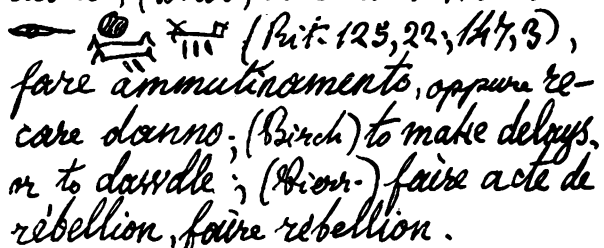 (Rit. 125, 22; 147, 3),
fare ammutinamento, oppure re-
care danno; (Birch) to make delays,
or to dawdle; (Pierr.) faire acte de
rébellion, faire rébellion.